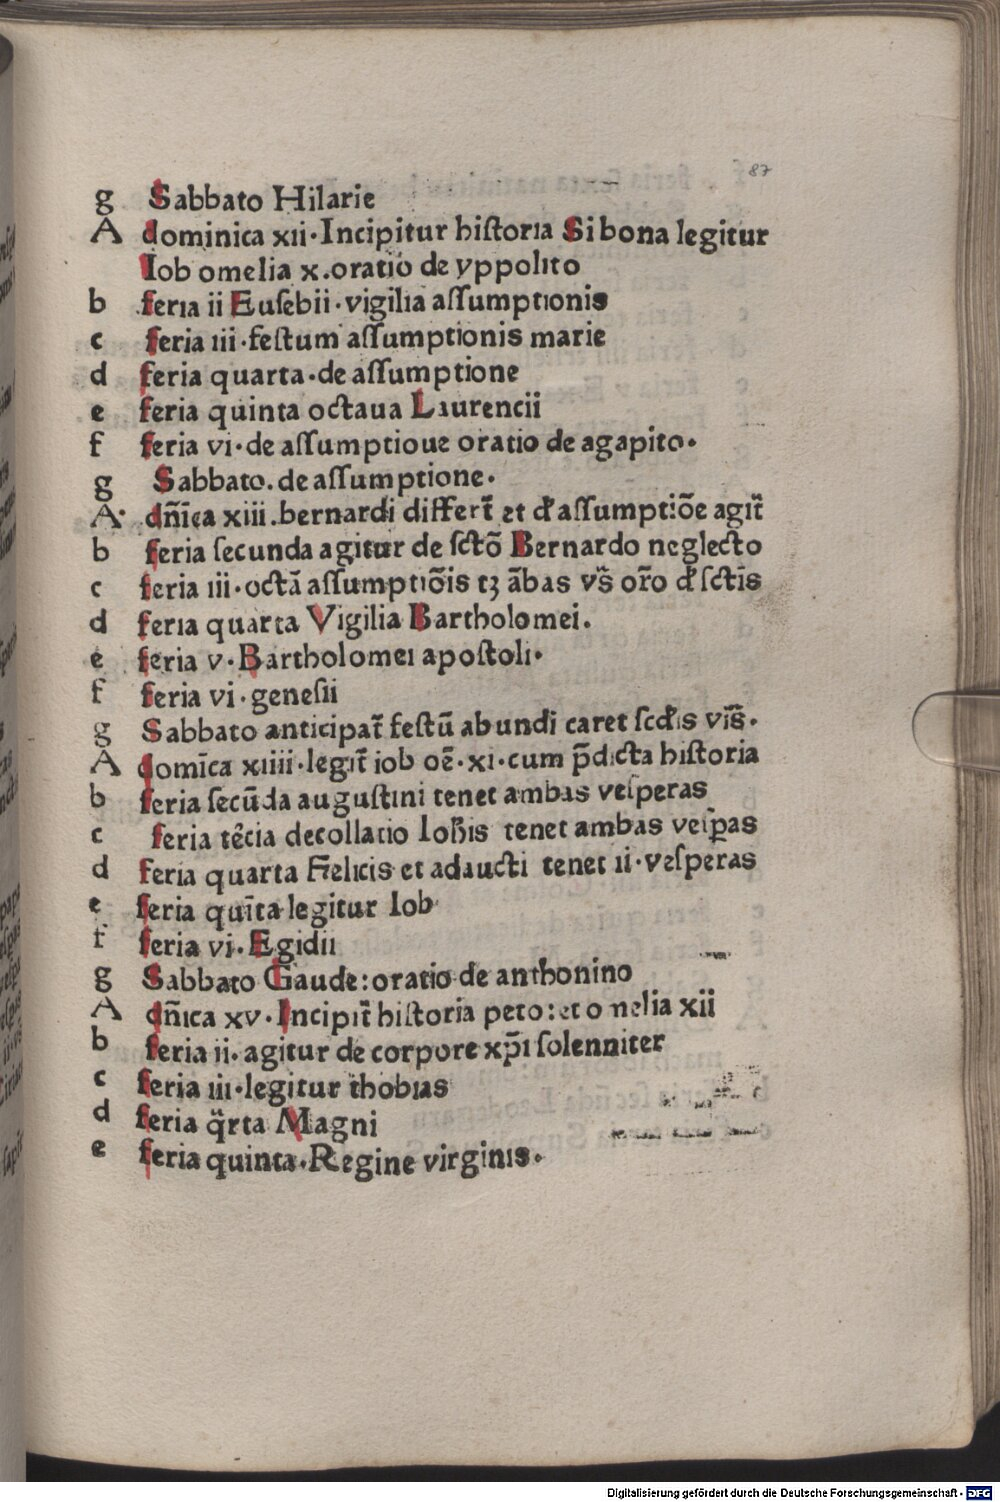 87
g Sabbato Hilarie
A dominica xii·Incipitur hiſtoria Si bona legitur
Iob omelia x.oratio de yppolito
b feria ii Euſebii·vigilia aſſumptionis
c feria iii·feſtum aſſumptionis marie
d feria quarta·de aſſumptione
e feria quinta octaua Laurencii
f feria vi·de aſſumptioue oratio de agapito·
g Sabbato.de aſſumptione·
A· dn̄ica xiii.bernardi differt̄ et d' aſſumptiōe agit̄
b feria ſecunda agitur de ſctō Bernardo neglecto
c feria iii·octā aſſumptiōis tꝫ ābas vs̄ or̄o d' ſctīs
d feria quarta Vigilia Bartholomei.
e feria v·Bartholomei apoſtoli·
f feria vi·geneſii
g Sabbato anticipat̄ feſtū abundi caret ſcd'is vis̄·
A domīca xiiii·legit̄ iob oē·xi·cum p̄dicta hiſtoria
b feria ſecūda auguſtini tenet ambas veſperas
c feria tēcia decollatio Ioh̄is tenet ambas veſꝑas
d feria quarta Felicis et adaucti tenet ii·veſperas
e feria quīta legitur Iob
f feria vi·Egidii
g Sabbato Gaude:oratio de anthonino
A dn̄ica xv·Incipit̄ hiſtoria peto:et o nelia xii
b feria ii·agitur de corpore xp̄i ſolenniter
c feria iii·legitur thobias
d feria q̄rta Magni
e feria quinta·Regine virginis·
Digitalisierung gefördert durch die Deutsche Forschungsgemeinschaft - DFG